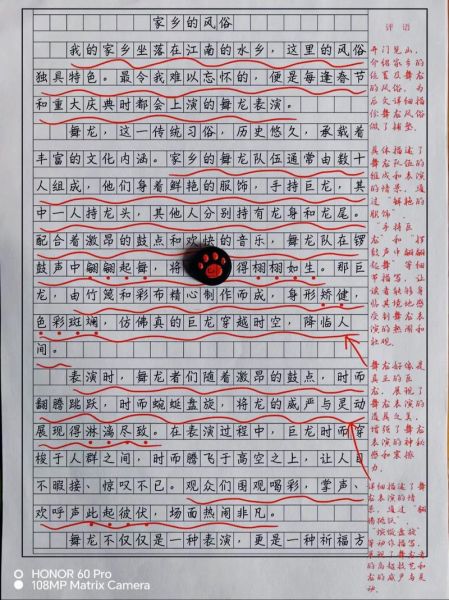 家乡的风俗
我的家乡坐落在江南的水乡，这里的风俗
独具特色。最令我难以忘怀的，便是每逢春节
和重大庆典时都会上演的舞龙表演。
舞龙，这一传统习俗，历史悠久，承载着
丰富的文化内涵。家乡的舞龙队伍通常由数十
人组成，他们身着鲜艳的服饰，手持巨龙，其
中一人持龙头，其他人分别持有龙身和龙尾。
配合着激昂的鼓点和欢快的音乐，舞龙队在锣
鼓声中翩翩起舞，将得栩栩如生。那巨
龙，由竹篾和彩布精心制作而成，身形矫健，
色彩斑斓，仿佛真的巨龙穿越时空，降临人
间。
表演时，舞龙者们随着激昂的鼓点，时而
翻腾跳跃，时而蜿蜒盘旋，将龙的威严与灵动
展现得淋漓尽致。在表演过程中，巨龙时而穿
梭于人群之间，时而腾飞于高空之上，让人目
不暇接、惊叹不已。观众们围观喝彩，掌声、
欢呼声此起彼伏，场面热闹非凡。
舞龙不仅仅是一种表演，更是一种祈福方
评语
开门见山，
介绍家乡的
位置及舞龙
的风俗，为
后文详细描
你舞龙风俗
做了铺垫。
具体描述了
舞龙队伍的
组成和表演
的情景，通
过“鲜艳的
服饰”
“手持巨
龙”和“锣
鼓声中翩翩
起舞”等细
节描写，让
读者能够身
临其境地感
受到舞龙表
演的热闹和
壮观。
舞龙好像是
真正的巨
龙，展现了
舞龙表演的
道具之美，
增强了舞龙
表演的神秘
感和震撼
力。
详细描述了舞
龙表演的情
景，通过“翻
腾跳跃”
“蜿蜒盘旋”
等动作描写，
展现了舞龙者
的高超技艺和
龙的威严与灵
动。
HONOR 60 Pro
108MP Matrix Camera